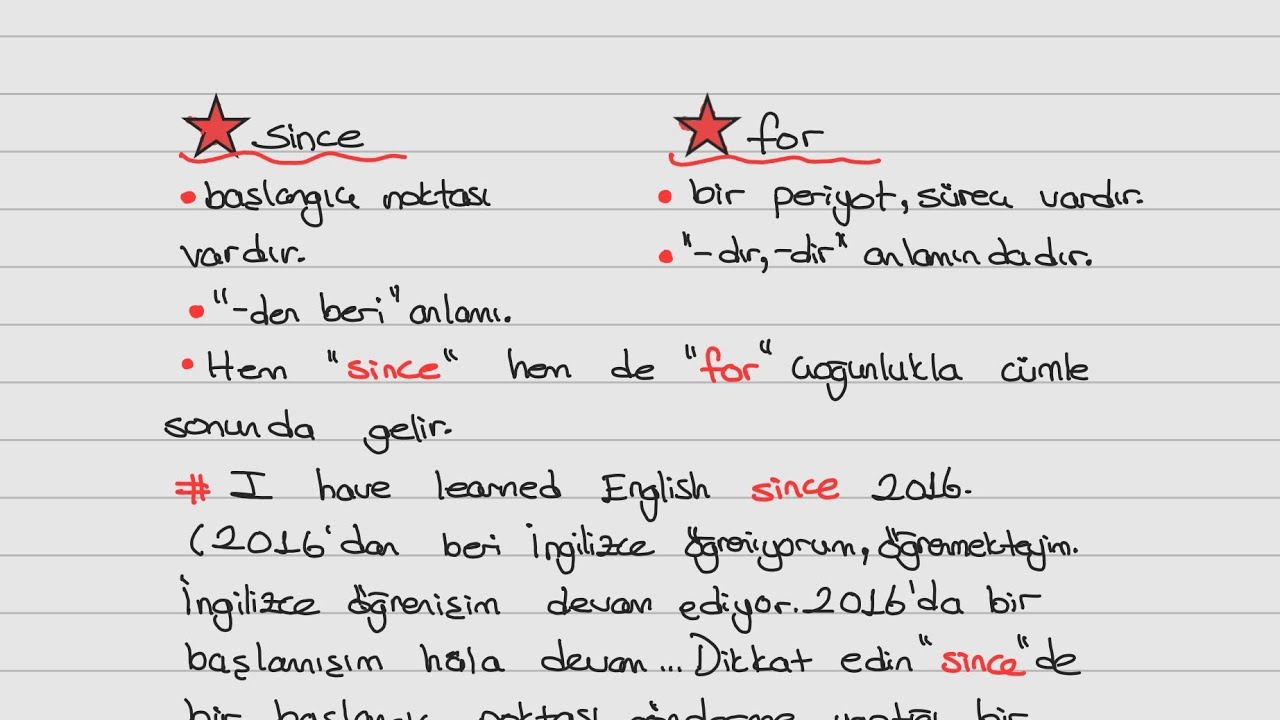 since
for
• başlangıç noktası
vardır.
• bir periyot, süreç vardır.
• "-dır, -dir" anlamındadır.
• "-den beri" anlamı.
• Hem "since" hem de "for" çoğunlukla cümle
sonunda gelir.
# I have learned English since 2016.
(2016'dan beri İngilizce öğreniyorum, öğrenmekteyim.
İngilizce öğrenişim devam ediyor. 2016'da bir
başlamışım hâla devam... Dikkat edin "since" de
bir başlangıç noktası gönderme yaptığı bir